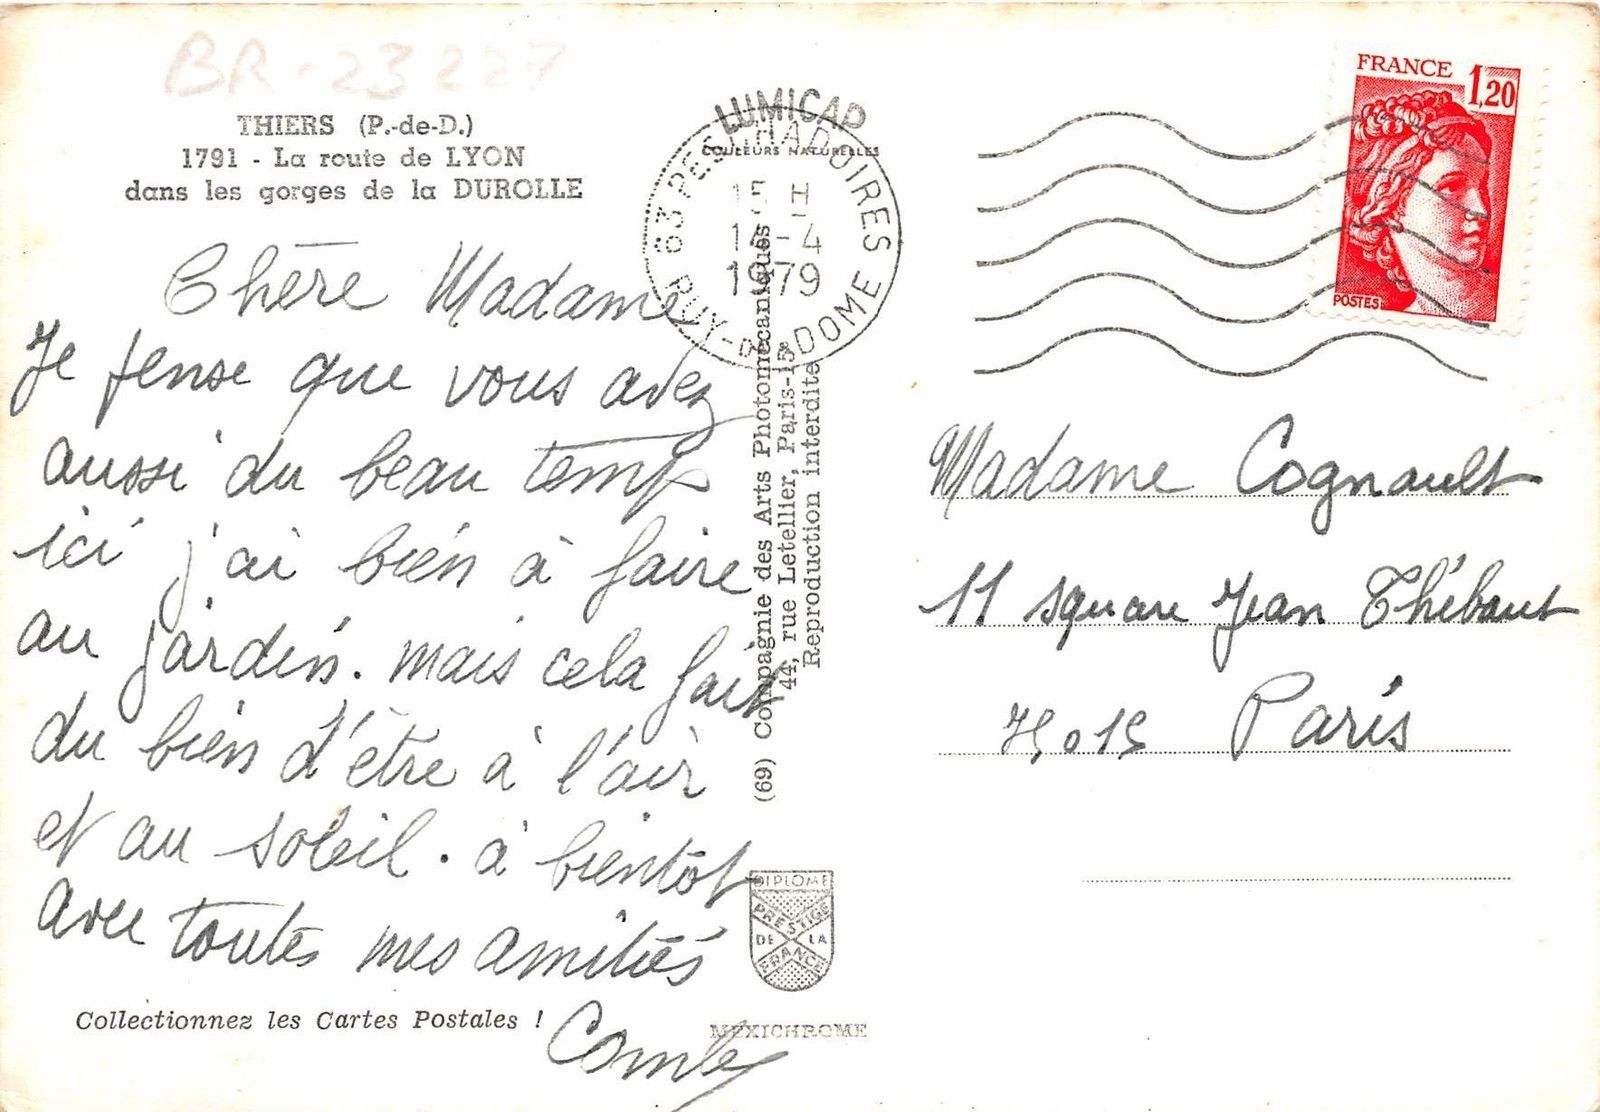 BR-23227
THIERS (P.-de-D.)
1791 - La route de LYON
dans les gorges de la DUROLLE
Chère Madame
Je pense que vous avez
aussi du beau temps
ici j'ai bien à faire
au jardin. mais cela fait
du bien d'être à l'air
et au soleil. à bientôt
avec toutes mes amitiés
Collectionnez les Cartes Postales !
LUMICAP
COULEURS NATURELLES
63 PESCHADOIRES
15 H
-4
1979
PUY-DE-DOME
(69) Compagnie des Arts Photomécaniques
44, rue Letellier, Paris-15e
Reproduction interdite
DIPLOME
PRESTIGE
DE LA
FRANCE
MEXICHROME
FRANCE 1,20
POSTES
Madame Cognault
11 square Jean Thébaut
75015 Paris